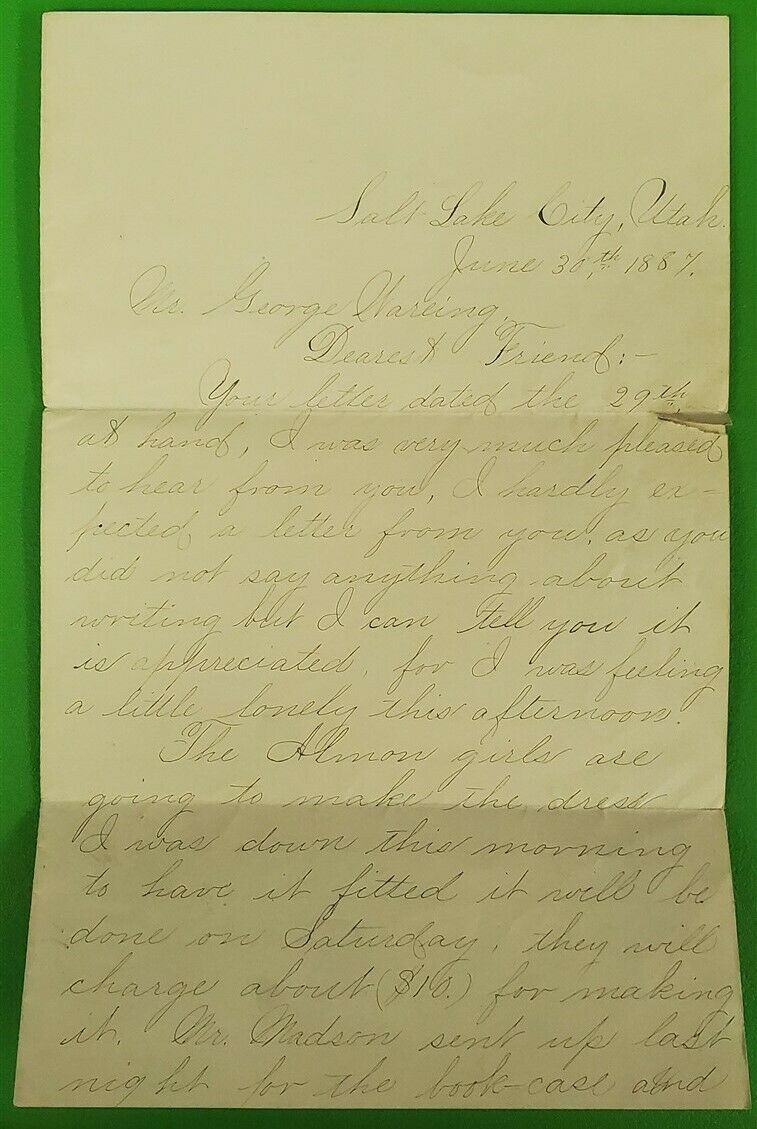 Salt Lake City, Utah.
June 30th, 1887.
Mr. George Wareing,
Dearest Friend:-
Your letter dated the 29th,
at hand, I was very much pleased
to hear from you, I hardly ex-
pected a letter from you, as you
did not say anything about
writing but I can tell you it
is appreciated, for I was feeling
a little lonely this afternoon.
The Almon girls are
going to make the dress
I was down this morning
to have it fitted it will be
done on Saturday, they will
charge about ($10.) for making
it. Mr. Madson sent up last
night for the book-case and